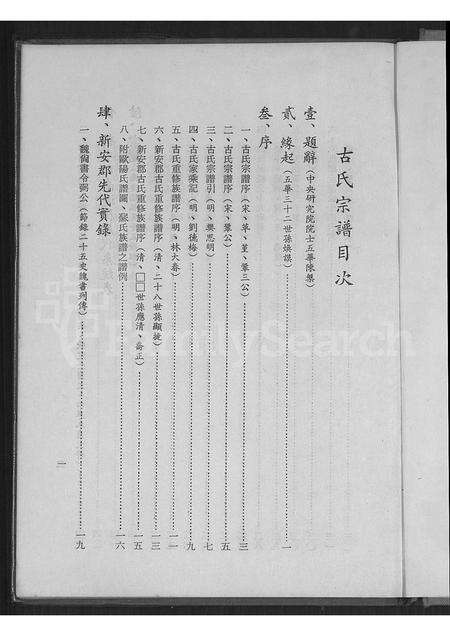 古氏宗譜目次
壹、題辭（中央研究院院士五華陳槃）
貳、緣起（五華三十二世孫煥謀）……一
叁、序
一、古氏宗譜序（宋、革、堇、鞏三公）……三
二、古氏宗譜序（宋、鞏公）……五
三、古氏宗譜引（明、樂思明）……七
四、古氏家乘記（明、劉德梅）……九
五、古氏重修族譜序（明、林大春）……一一
六、新安郡古氏重修族譜序（清、二十八世孫顯捷）……一三
七、新安郡古氏重修族譜序（清、□□世孫應清、喬正）……一五
八、附歐陽氏譜圖、蘇氏族譜之譜例……一六
肆、新安郡先代實錄
一、魏尚書令弼公（節錄二十五史魏書列傳）……一九
一
FamilySearch